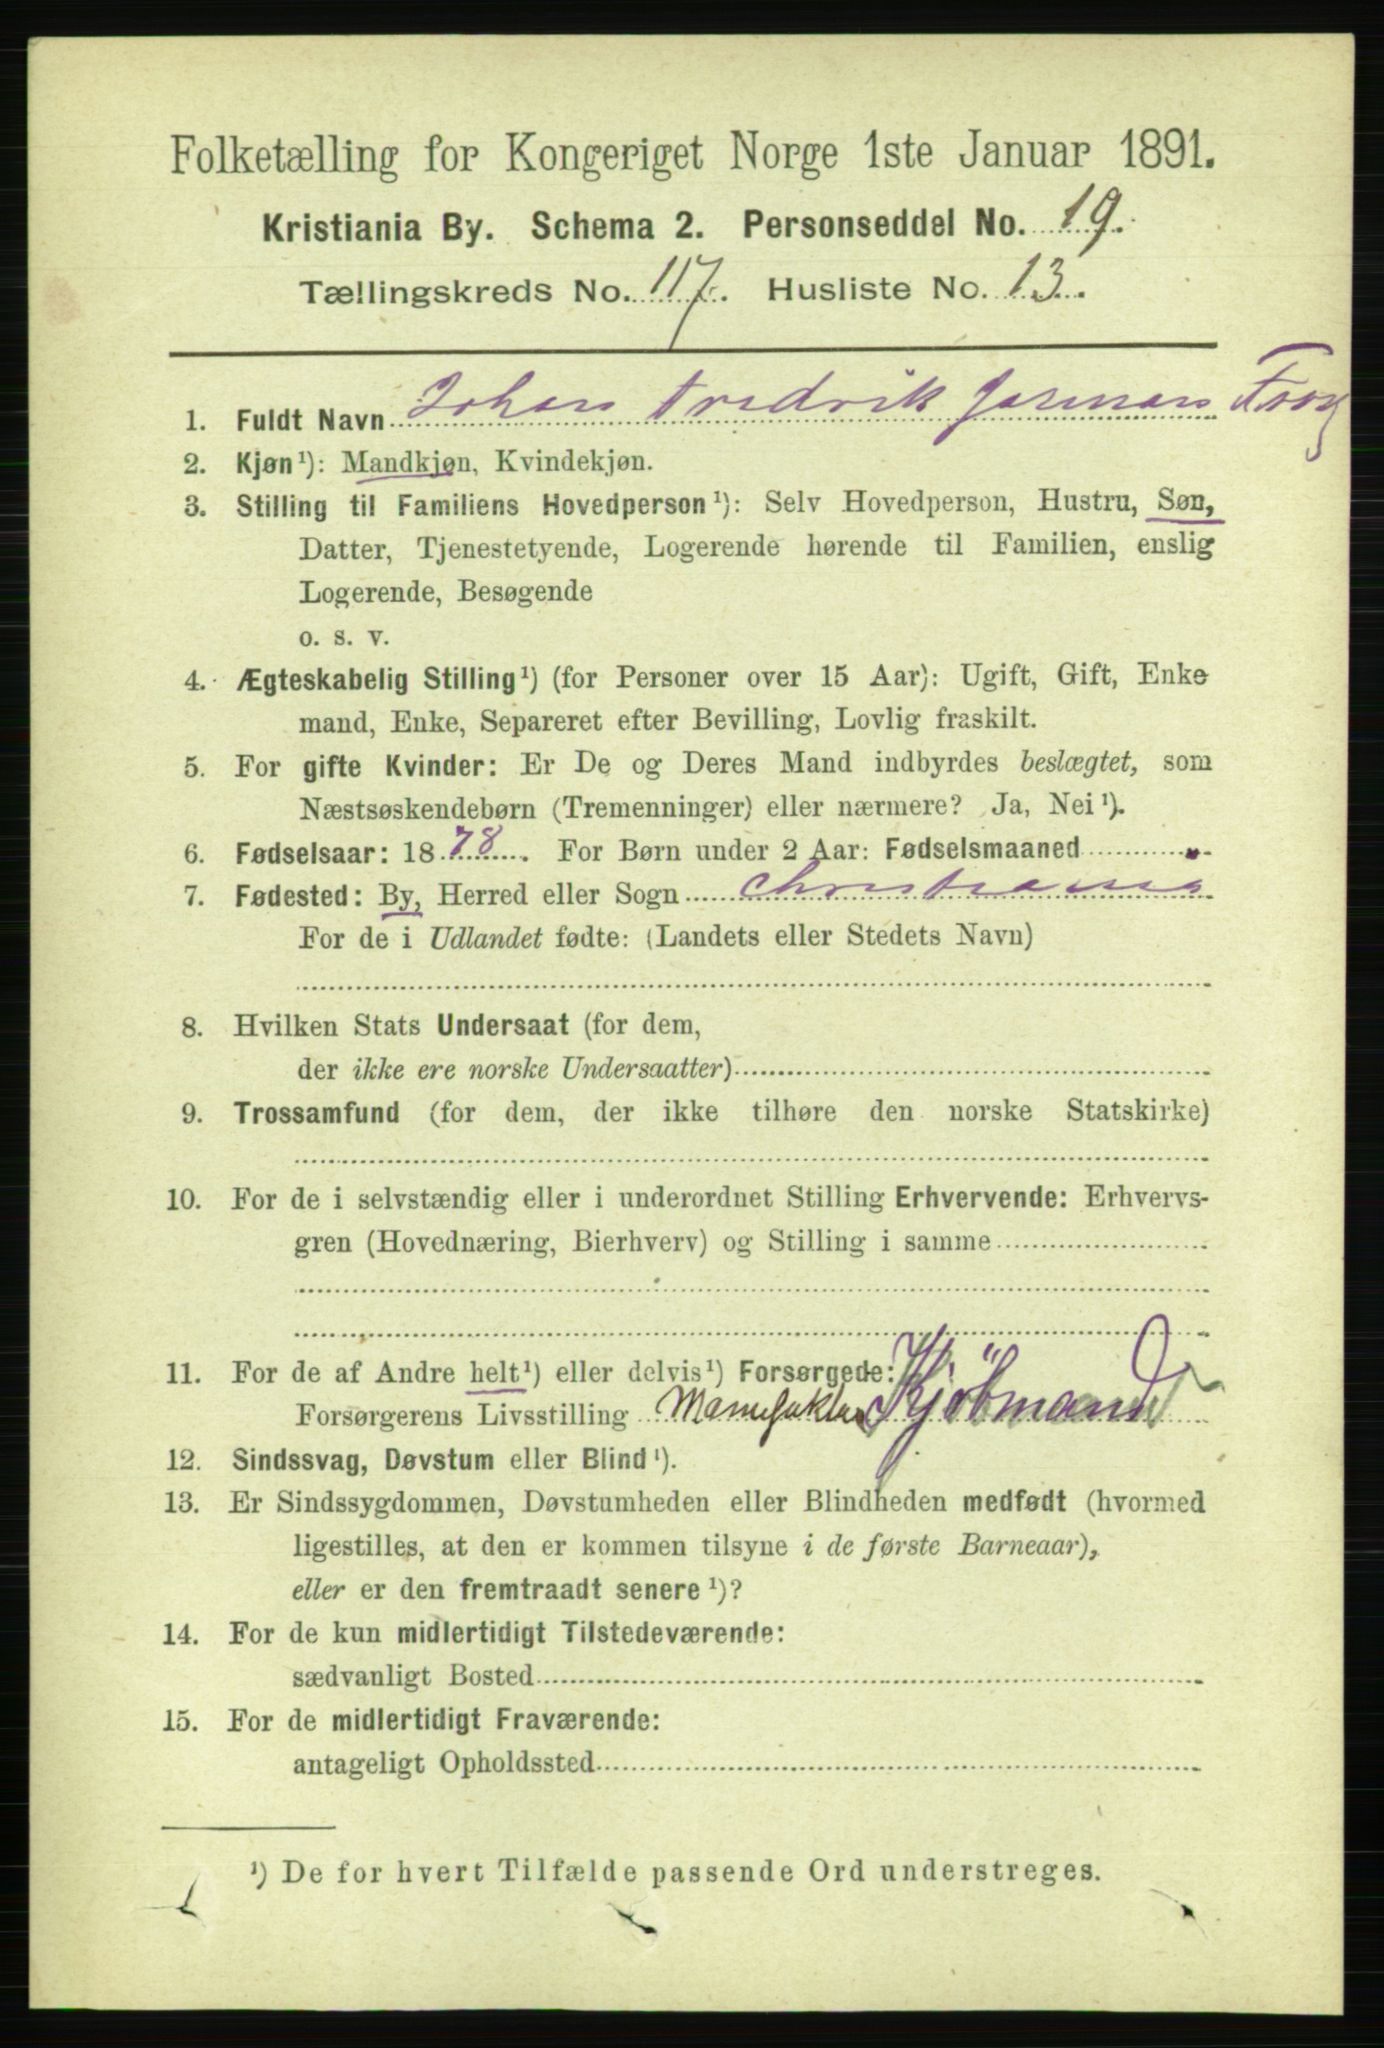 Folketælling for Kongeriget Norge 1ste Januar 1891.
Kristiania By. Schema 2. Personseddel No. 19.
Tællingskreds No. 117. Husliste No. 13.
1. Fuldt Navn Johan Fredrik
2. Kjøn¹): Mandkjøn, Kvindekjøn.
3. Stilling til Familiens Hovedperson¹): Selv Hovedperson, Hustru, Søn,
Datter, Tjenestetyende, Logerende hørende til Familien, enslig
Logerende, Besøgende
o. s. v.
4. Ægteskabelig Stilling¹) (for Personer over 15 Aar): Ugift, Gift, Enke
mand, Enke, Separeret efter Bevilling, Lovlig fraskilt.
5. For gifte Kvinder: Er De og Deres Mand indbyrdes beslægtet, som
Næstsøskendebørn (Tremenninger) eller nærmere? Ja, Nei¹).
6. Fødselsaar: 1878. For Børn under 2 Aar: Fødselsmaaned
7. Fødested: By, Herred eller Sogn Christiania
For de i Udlandet fødte: (Landets eller Stedets Navn)
8. Hvilken Stats Undersaat (for dem,
der ikke ere norske Undersaatter)
9. Trossamfund (for dem, der ikke tilhøre den norske Statskirke)
10. For de i selvstændig eller i underordnet Stilling Erhvervende: Erhvervs-
gren (Hovednæring, Bierhverv) og Stilling i samme
11. For de af Andre helt¹) eller delvis¹) Forsørgede:
Forsørgerens Livsstilling Manufaktur Kjöbmand
12. Sindssvag, Døvstum eller Blind¹).
13. Er Sindssygdommen, Døvstumheden eller Blindheden medfødt (hvormed
ligestilles, at den er kommen tilsyne i de første Barneaar),
eller er den fremtraadt senere¹)?
14. For de kun midlertidigt Tilstedeværende:
sædvanligt Bosted
15. For de midlertidigt Fraværende:
antageligt Opholdssted
¹) De for hvert Tilfælde passende Ord understreges.